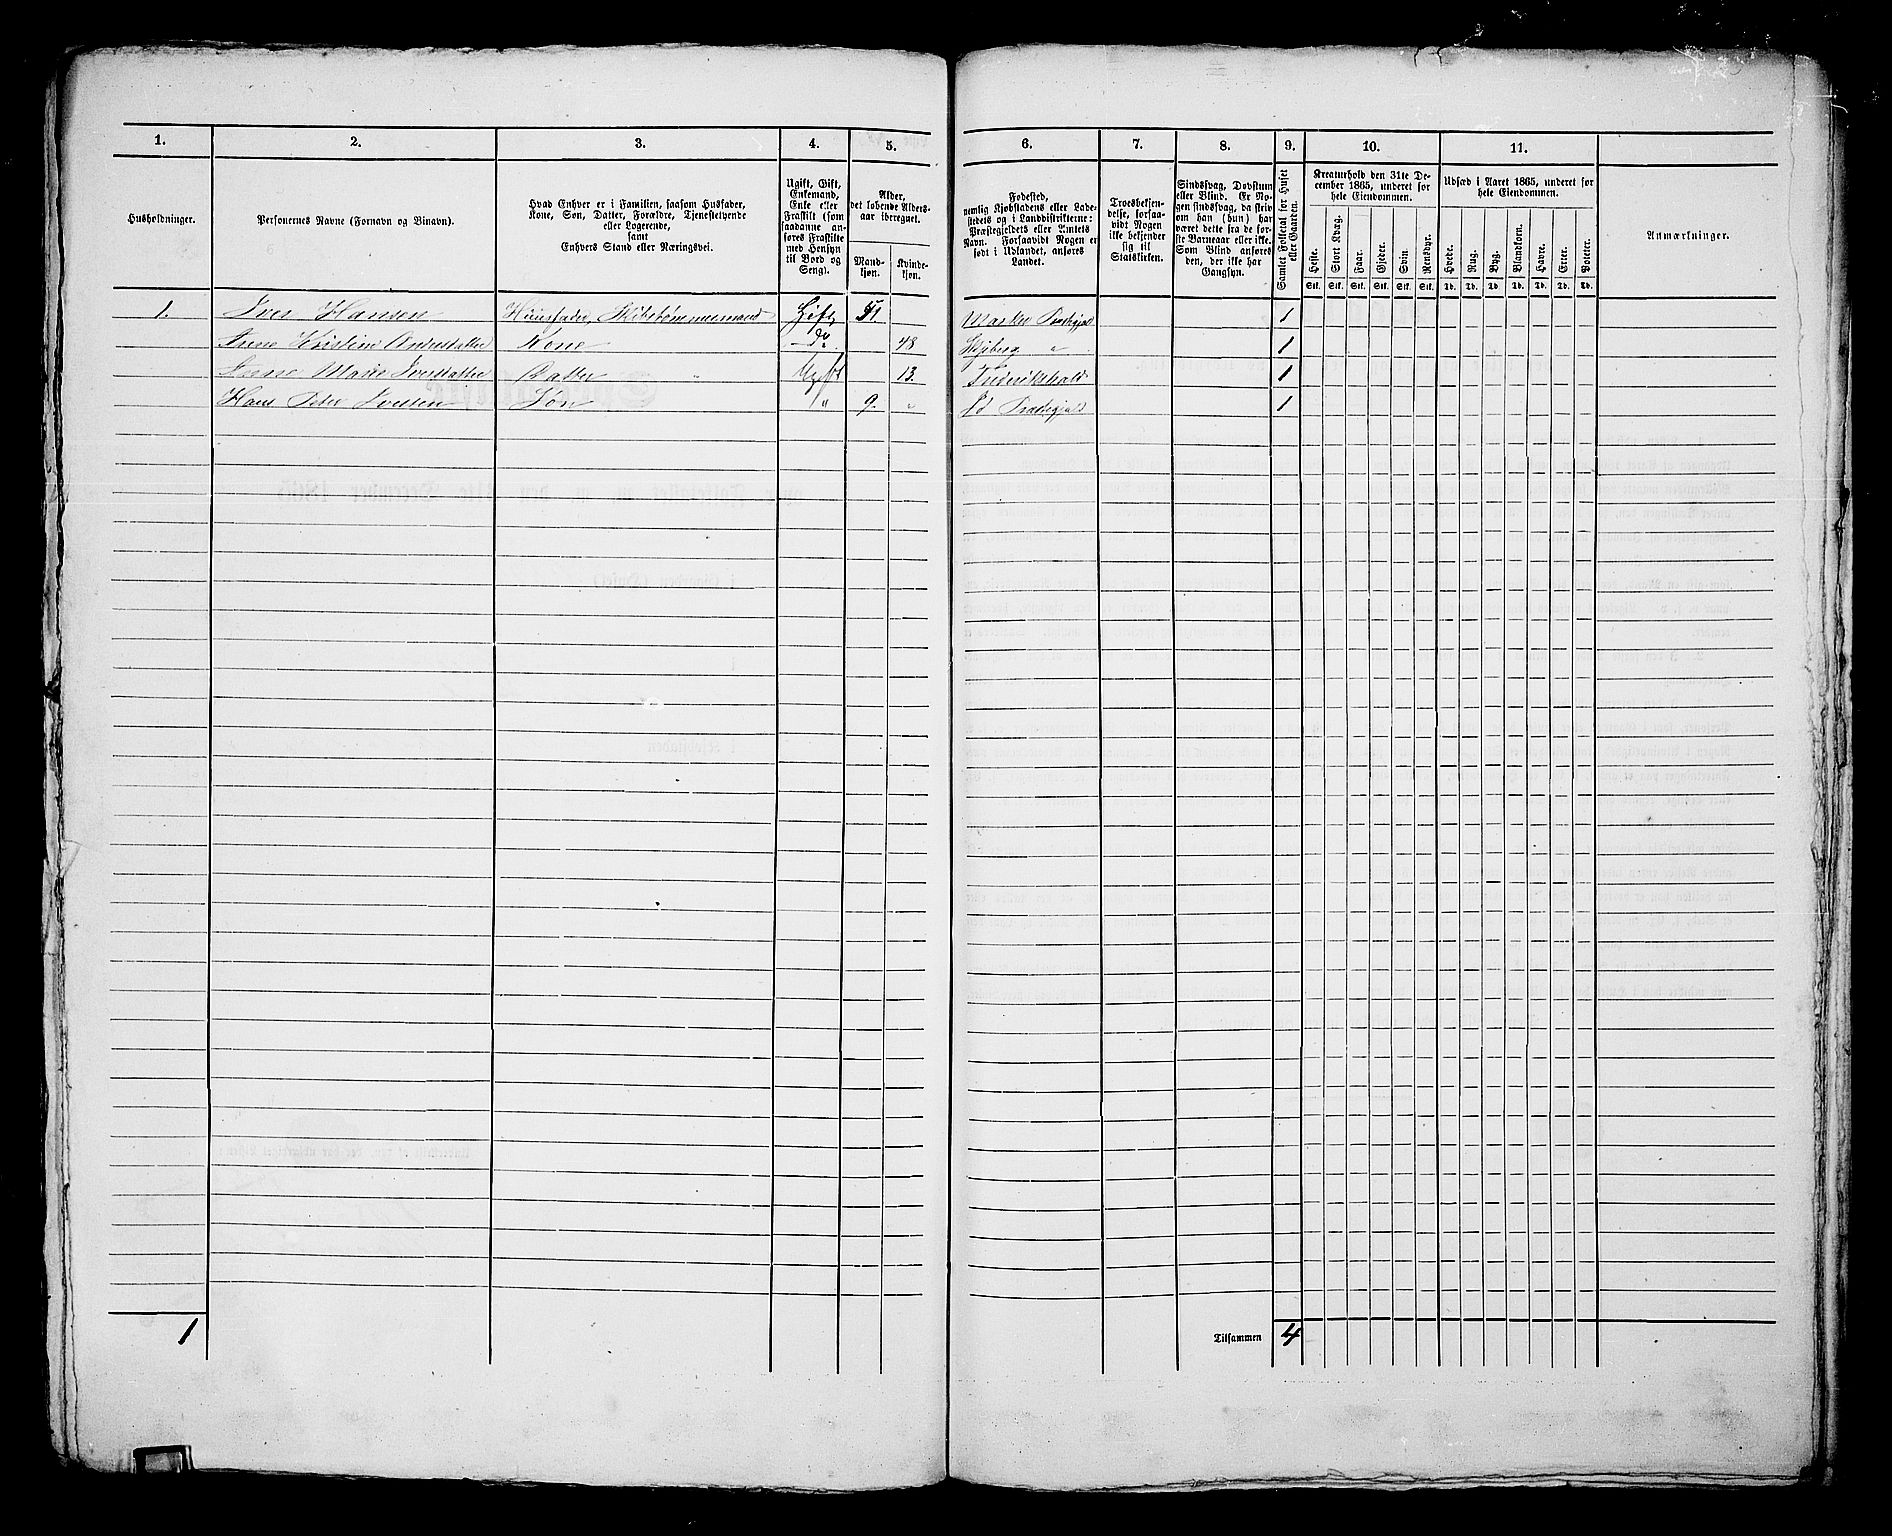 1. 2. 3. 4. 5. 6. 7. 8. 9. 10. 11.
Husholdninger.
Personernes Navne (Fornavn og Binavn).
Hvad Enhver er i Familien, saasom Husfader,
Kone, Søn, Datter, Forældre, Tjenestetyende
eller Logerende,
samt
Enhvers Stand eller Næringsvei.
Ugift, Gift,
Enkemand,
Enke eller
Fraskilt (som
saadanne an-
føres Fraskilte
med Hensyn
til Bord og
Seng).
Alder,
det løbende Alders-
aar iberegnet.
Mand-
kjøn.
Kvinde-
kjøn.
Fødested,
nemlig Kjøbstadens eller Lade-
stedets og i Landdistrikterne:
Præstegjeldets eller Amtets
Navn. Forsaavidt Nogen er
født i Udlandet, anføres
Landet.
Troesbekjen-
delse, forsaa-
vidt Nogen
ikke bekjender
sig til
Statskirken.
Sindssvag, Døvstum
eller Blind. Er No-
gen sindssvag, da skriv
om han (hun) har
været dette fra de før-
ste Barneaar eller ikke.
Som Blind anføres
den, der ikke har
Gangsyn.
Samlet Folketal for Huset
eller Gaarden.
Kreaturhold den 31te De-
cember 1865, underet for
hele Eiendommen.
Heste. Stort Kvæg. Faar. Gjeder. Svin. Rensdyr.
Stk. Stk. Stk. Stk. Stk. Stk.
Udsæd i Aaret 1865, underet for
hele Eiendommen.
Hvede. Rug. Byg. Blandkorn. Havre. Erter. Poteter.
Td. Td. Td. Td. Td. Td. Td.
Anmærkninger.
1. Iver Hansen Huusfader, Skibstømmermand Gift 51 Marker Præstegjæld 1
Anne Kristine Andersdatter Kone do 48 Skjeberg " 1
Marie Iversdatter Datter " Ugift 13. Frederikshald 1
Hans Peter Iversen Søn " 9. " Id Præstegjæld 1
1 Tilsammen 4